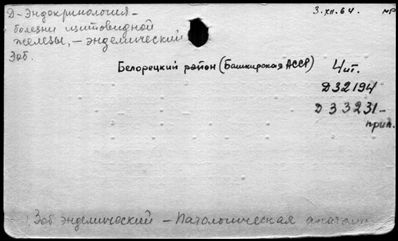 Д-Эндокринология-
болезни щитовидной
железы, - эндемический
Зоб.
3.XII.64.
Белорецкий район (Башкирская АССР)
4 шт.
Д32194
Д33231-
прил.
Зоб эндемический - Патологическая анатомия